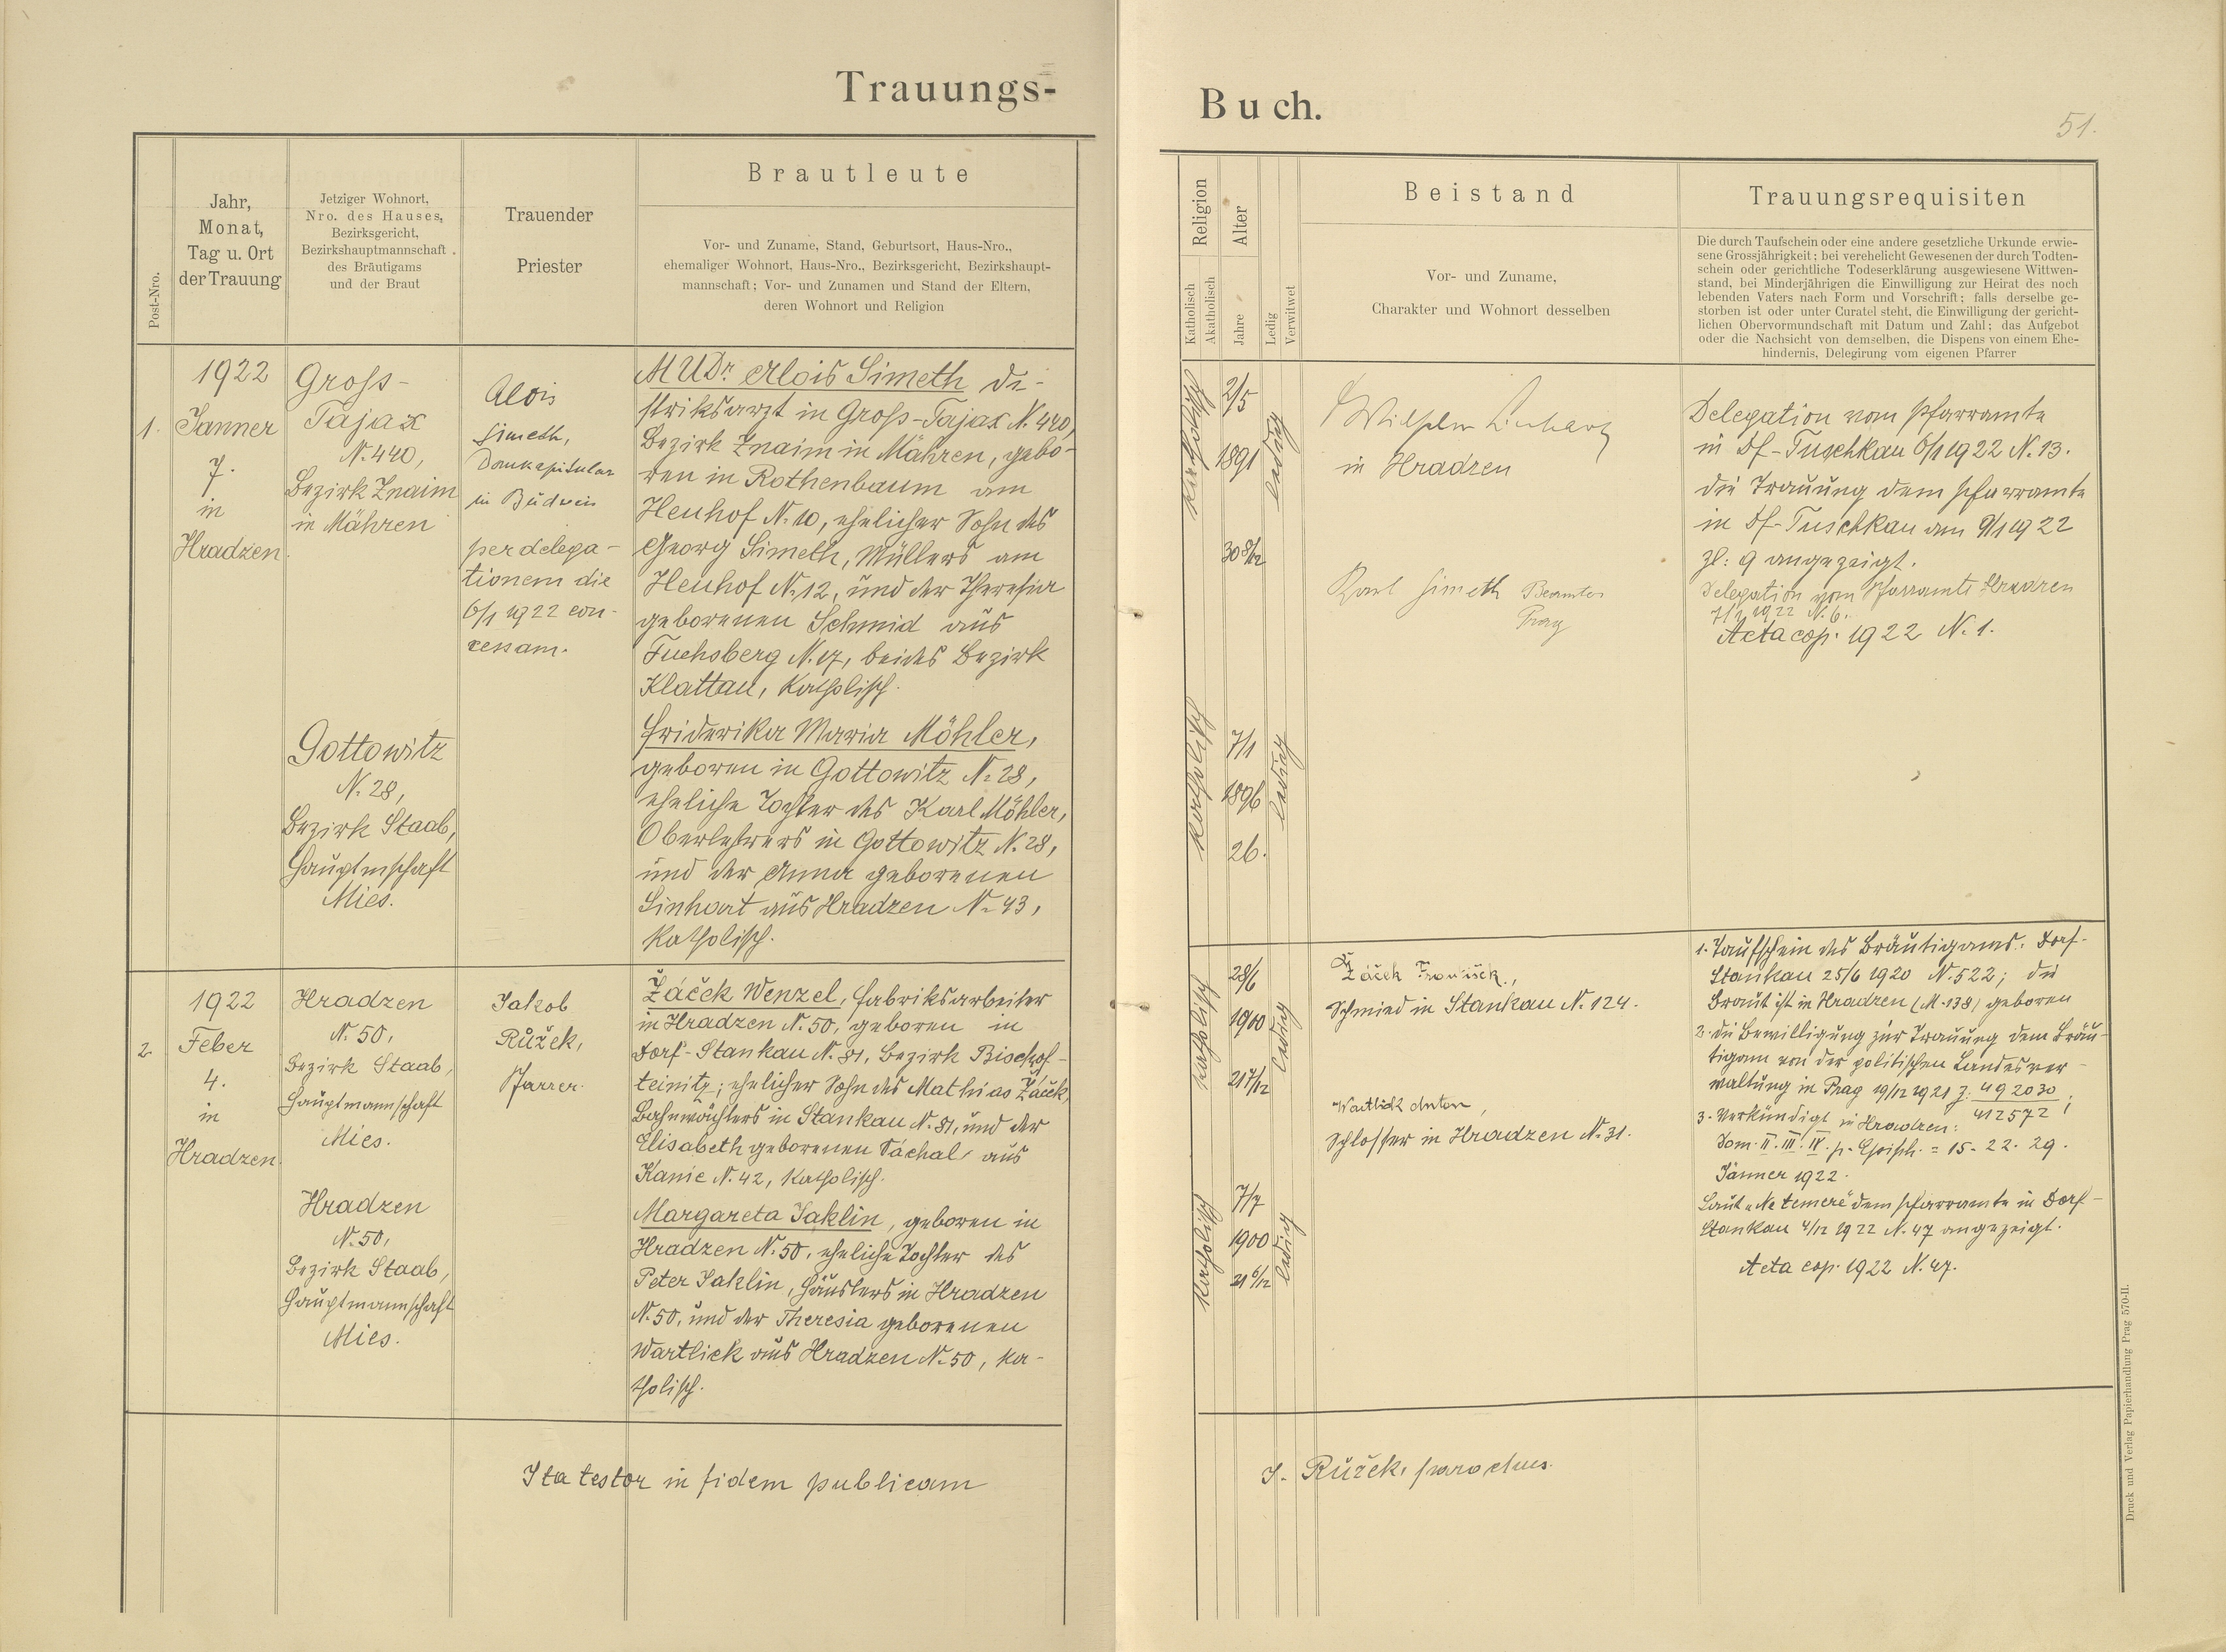 Trauungs-
Post-Nro.
Jahr,
Monat,
Tag u. Ort
der Trauung
Jetziger Wohnort,
Nro. des Hauses,
Bezirksgericht,
Bezirkshauptmannschaft
des Bräutigams
und der Braut
Trauender
Priester
Brautleute
Vor- und Zuname, Stand, Geburtsort, Haus-Nro.,
ehemaliger Wohnort, Haus-Nro., Bezirksgericht, Bezirkshaupt-
mannschaft; Vor- und Zunamen und Stand der Eltern,
deren Wohnort und Religion
1.
1922
Janner
7.
in
Hradzen.
Gross-
Tajax
N. 440,
Bezirk Znaim
in Mähren
Alois
Simeth,
Domkapitular
in Budweis
per delega-
tionem die
6/1 1922 con-
cessam.
MUDr. Alois Simeth Di-
striksarzt in Gross-Tajax N. 440,
Bezirk Znaim in Mähren, gebo-
ren in Rothenbaum am
Heuhof N. 10, ehelicher Sohn des
Georg Simeth, Müllers am
Heuhof N. 12, und der Theresia
geborenen Schmid aus
Fuchsberg N. 17, beides Bezirk
Klattau, katholisch.
Gottowitz
N. 28,
Bezirk Staab,
Hauptmschaft
Mies.
Friderika Maria Möhler,
geboren in Gottowitz N. 28,
eheliche Tochter des Karl Möhler,
Oberlehrers in Gottowitz N. 28,
und der Anna geborenen
Linhart aus Hradzen N. 43,
katholisch.
2.
1922
Feber
4.
in
Hradzen.
Hradzen
N. 50,
Bezirk Staab,
Hauptmannschaft
Mies.
Jakob
Růžek,
Pfarrer.
Žáček Wenzel, Fabriksarbeiter
in Hradzen N. 50, geboren in
Dorf-Stankau N. 81, Bezirk Bischof-
teinitz; ehelicher Sohn des Mathias Žáček,
Bahnwächters in Stankau N. 81, und der
Elisabeth geborenen Váchal aus
Kanic N. 42, katholisch.
Hradzen
N. 50,
Bezirk Staab,
Hauptmannschaft
Mies.
Margareta Jaklin, geboren in
Hradzen N. 50, eheliche Tochter des
Peter Jaklin, Häuslers in Hradzen
N. 50, und der Theresia geborenen
Wartlick aus Hradzen N. 50, ka-
tholisch.
Ita testor in fidem publicam
Buch.
51.
Religion
Katholisch
Akatholisch
Alter
Jahre
Ledig
Verwitwet
Beistand
Vor- und Zuname,
Charakter und Wohnort desselben
Trauungsrequisiten
Die durch Taufschein oder eine andere gesetzliche Urkunde erwie-
sene Grossjährigkeit; bei verehelicht Gewesenen der durch Todten-
schein oder gerichtliche Todeserklärung ausgewiesene Wittwen-
stand, bei Minderjährigen die Einwilligung zur Heirat des noch
lebenden Vaters nach Form und Vorschrift; falls derselbe ge-
storben ist oder unter Curatel steht, die Einwilligung der gericht-
lichen Obervormundschaft mit Datum und Zahl; das Aufgebot
oder die Nachsicht von demselben, die Dispens von einem Ehe-
hindernis, Delegirung vom eigenen Pfarrer
katholisch
2/5
1891
30 8/12
ledig
Wilhelm Linhart
in Hradzen
Karl Simeth Beamter
Prag
Delegation vom Pfarramte
in Df-Tuschkau 6/1 1922 N. 13.
die Trauung dem Pfarramte
in Df-Tuschkau am 9/1 1922
zl: 9 angezeigt.
Delegation vom Pfarramte Hradzen
7/1 1922 N. 6.
Acta cop. 1922 N. 1.
katholisch
7/1
1896
26.
ledig
katholisch
28/6
1900
21 7/12
ledig
Žáček František,
Schmied in Stankau N. 124.
Wartlick Anton,
Schlosser in Hradzen N. 31.
1. Taufschein des Bräutigams. Dorf-
Stankau 25/6 1920 N. 522; die
Braut ist in Hradzen (M. 138) geboren
2. die Bewilligung zur Trauung dem Bräu-
tigam von der politischen Landesver-
waltung in Prag 19/12 1921 z: 492030
412572;
3. Verkündigt in Hradzen:
Dom. II. III. IV. p. Epiph. = 15. 22. 29.
Jänner 1922.
Laut "Ne temere" dem Pfarramte in Dorf-
Stankau 4/12 1922 N. 47 angezeigt.
Acta cop. 1922 N. 47.
katholisch
7/7
1900
21 6/12
ledig
J. Růžek, parochus.
Druck und Verlag Papierhandlung Prag 570-II.